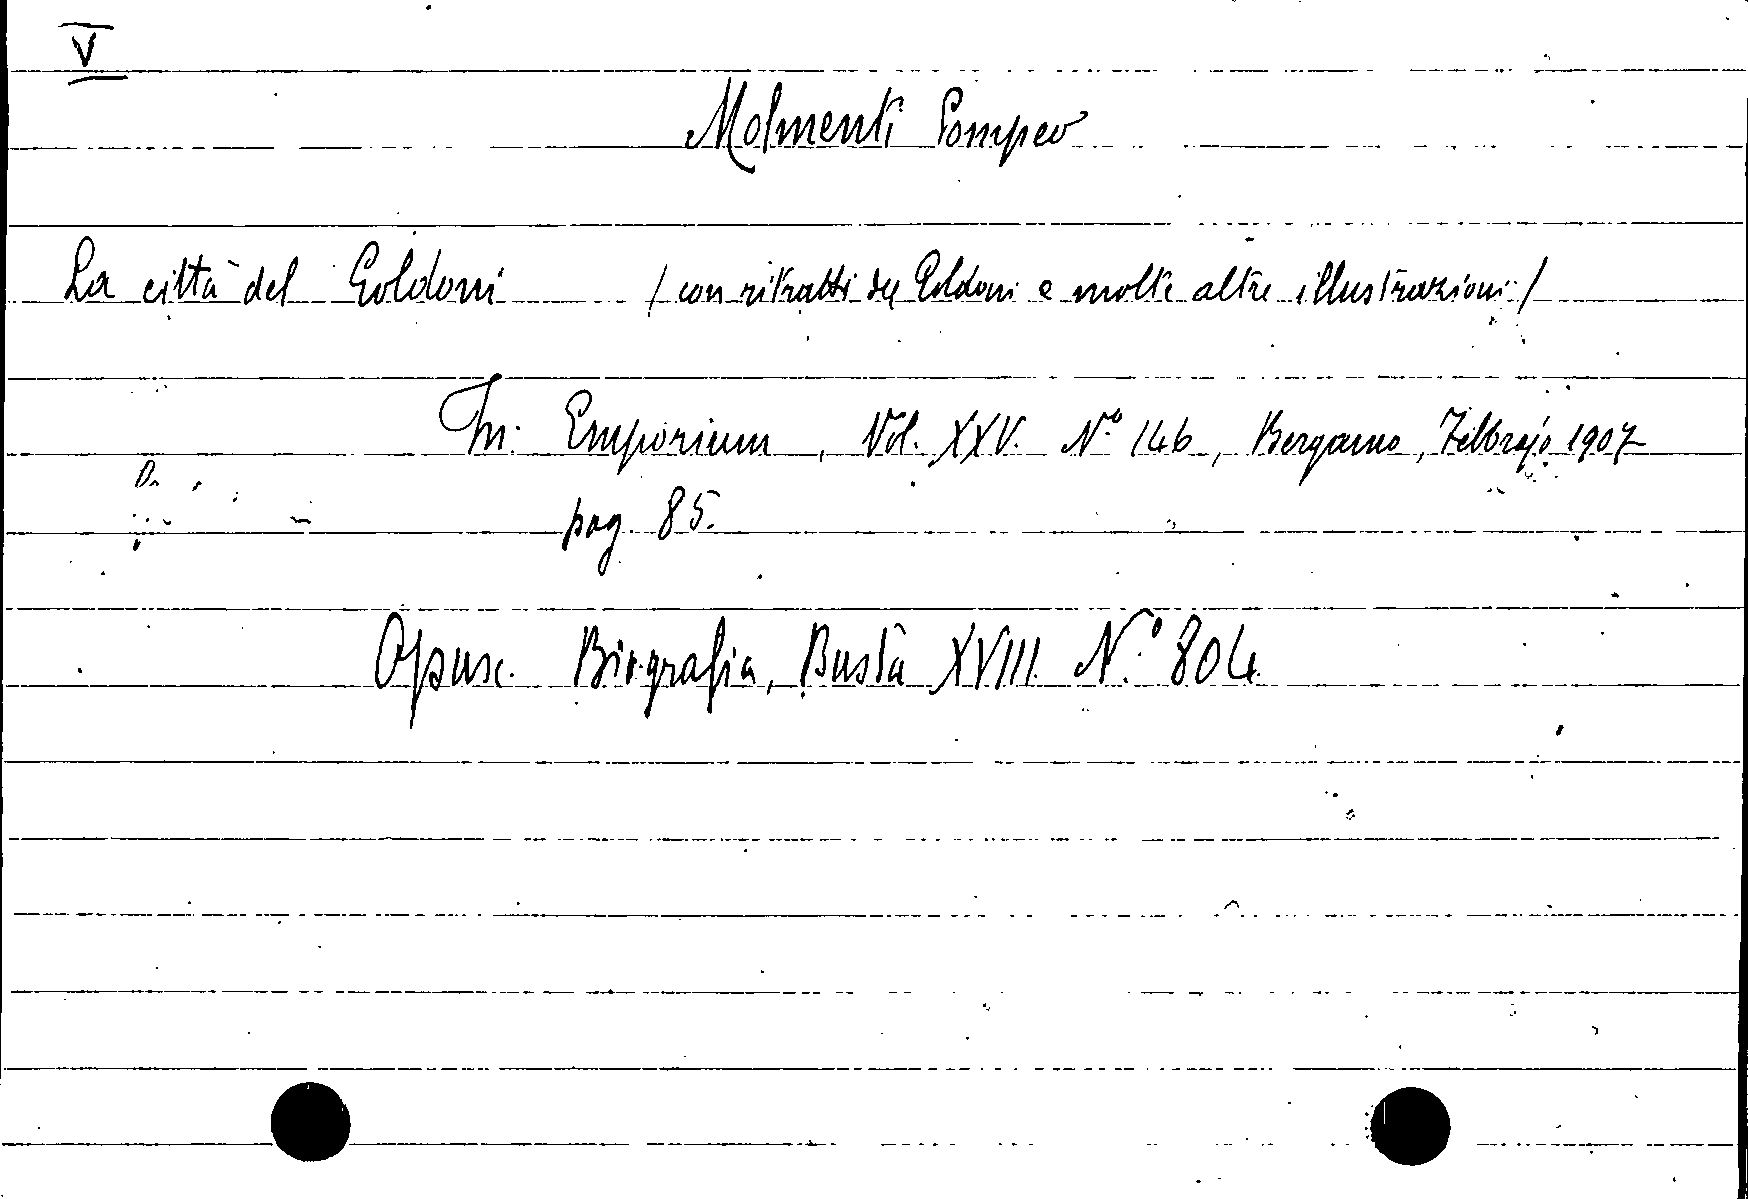 V
Molmenti Pompeo
La città del Goldoni /con ritratti del Goldoni e molte altre illustrazioni/
In: Emporium, Vol. XXV. N.º 146, Bergamo, Febbrajo 1907
pag. 85.
Opusc. Biografia, Busta XVIII N.º 804